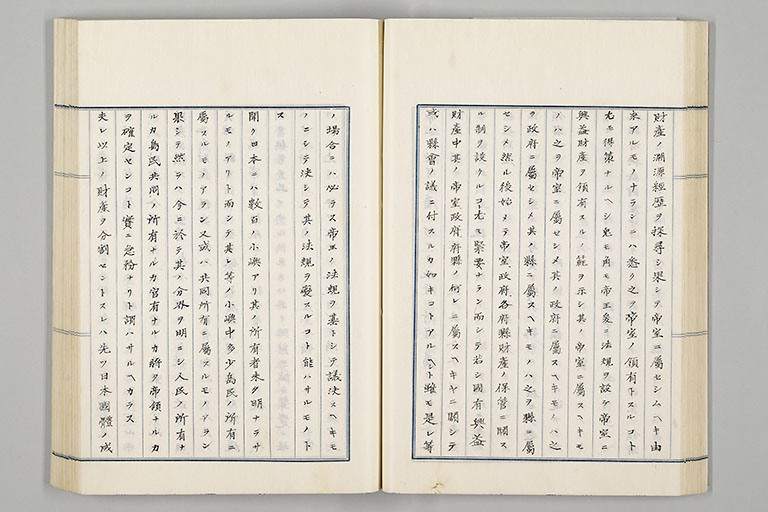 財産ノ淵源經歴ヲ探尋シ果シテ帝室ニ屬セシムヘキ由
來アルモノナランニハ悉ク之ヲ帝室ノ領有トスルコト
尤モ得策ナルヘシ兎モ角モ帝王爰ニ法規ヲ設ケ帝室ニ
興益財産ヲ領有スルノ範ヲ示シ其ノ帝室ニ屬スヘキモ
ノハ之ヲ帝室ニ屬セシメ其ノ政府ニ屬スヘキモノハ之
ヲ政府ニ屬セシメ其ノ縣ニ屬スヘキモノハ之ヲ縣ニ屬
セシメ然ル後始メテ帝室政府各府縣財産ノ保管ニ關ス
ル制ヲ設クルコト尤モ緊要ナラン而シテ若シ國有ノ興益
財産中其ノ帝室政府府縣ノ何レニ屬スヘキヤニ關シテ
或ハ縣會ノ議ニ付スルカ如キコトアルヘシト雖モ是レ等
ノ場合ニハ必ラス帝王ノ法規ヲ要トシテ議決スヘキモ
ノニシテ決シテ其ノ法規ヲ變スルコト能ハサルモノト
ス
聞ク日本ニハ數百ノ小嶼アリ其ノ所有者未タ明ナラサ
ルモノアリト而シテ其レ等ノ小嶼中多少島民ノ所有ニ
屬スルモノアラン又或ハ共同所有ニ屬スルモノアラン
果シテ然ラハ今ニ於テ其ノ分界ヲ明ニシ人民ノ所有ナ
ルカ島民共同ノ所有ナルカ官有ナルカ將タ帝領ナルカ
ヲ確定センコト實ニ急務ナリト謂ハサルヘカラス
夫レ以上ノ財産ヲ分割セントスレハ先ツ日本國體ノ成